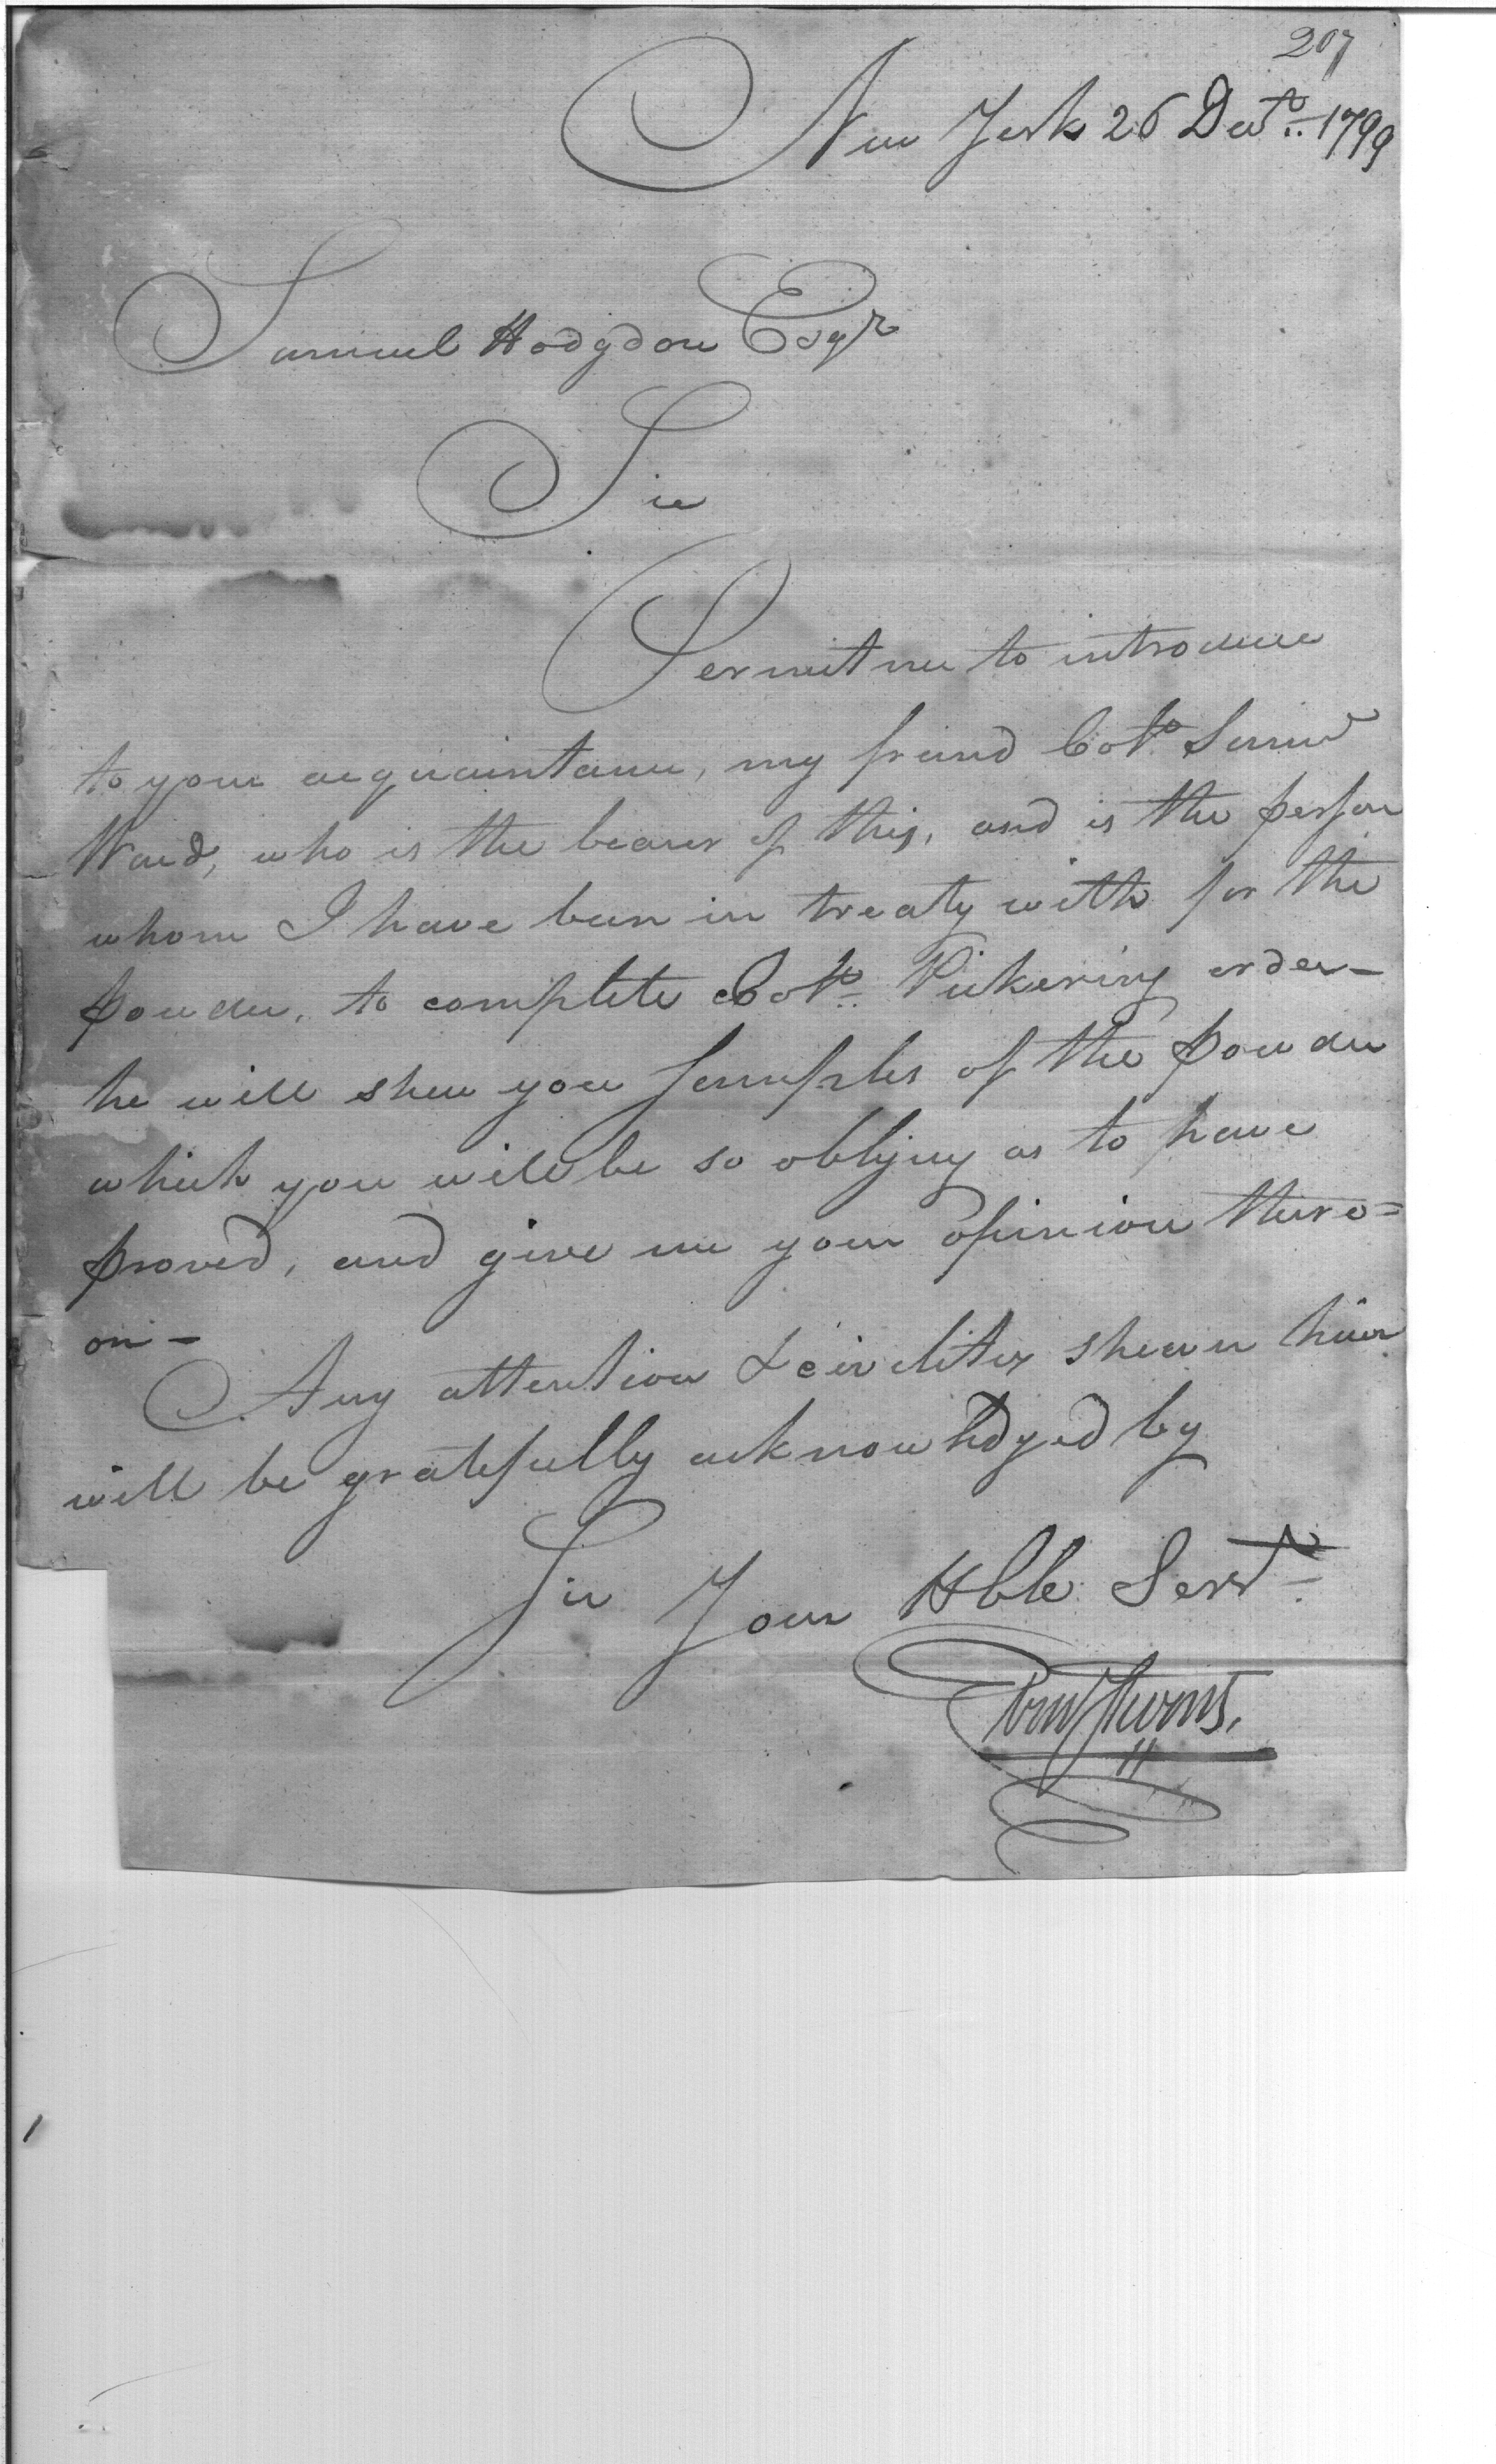 207
New York 26 Decr. 1799
Samuel Hodgdon Esqr
Sir
Permit me to introduce
to your acquaintance, my friend Colo. Samuel
Ward, who is the bearer of this, and is the person
whom I have been in treaty with for the
powder, to complete Colo. Pickering order—
he will shew you samples of the powder
which you will be so obliging as to have
proved, and give me your opinion there=
on—
Any attention & civility shewn him
will be gratefully acknowledged by
Sir Your Hble Servt
Eben Stevens.